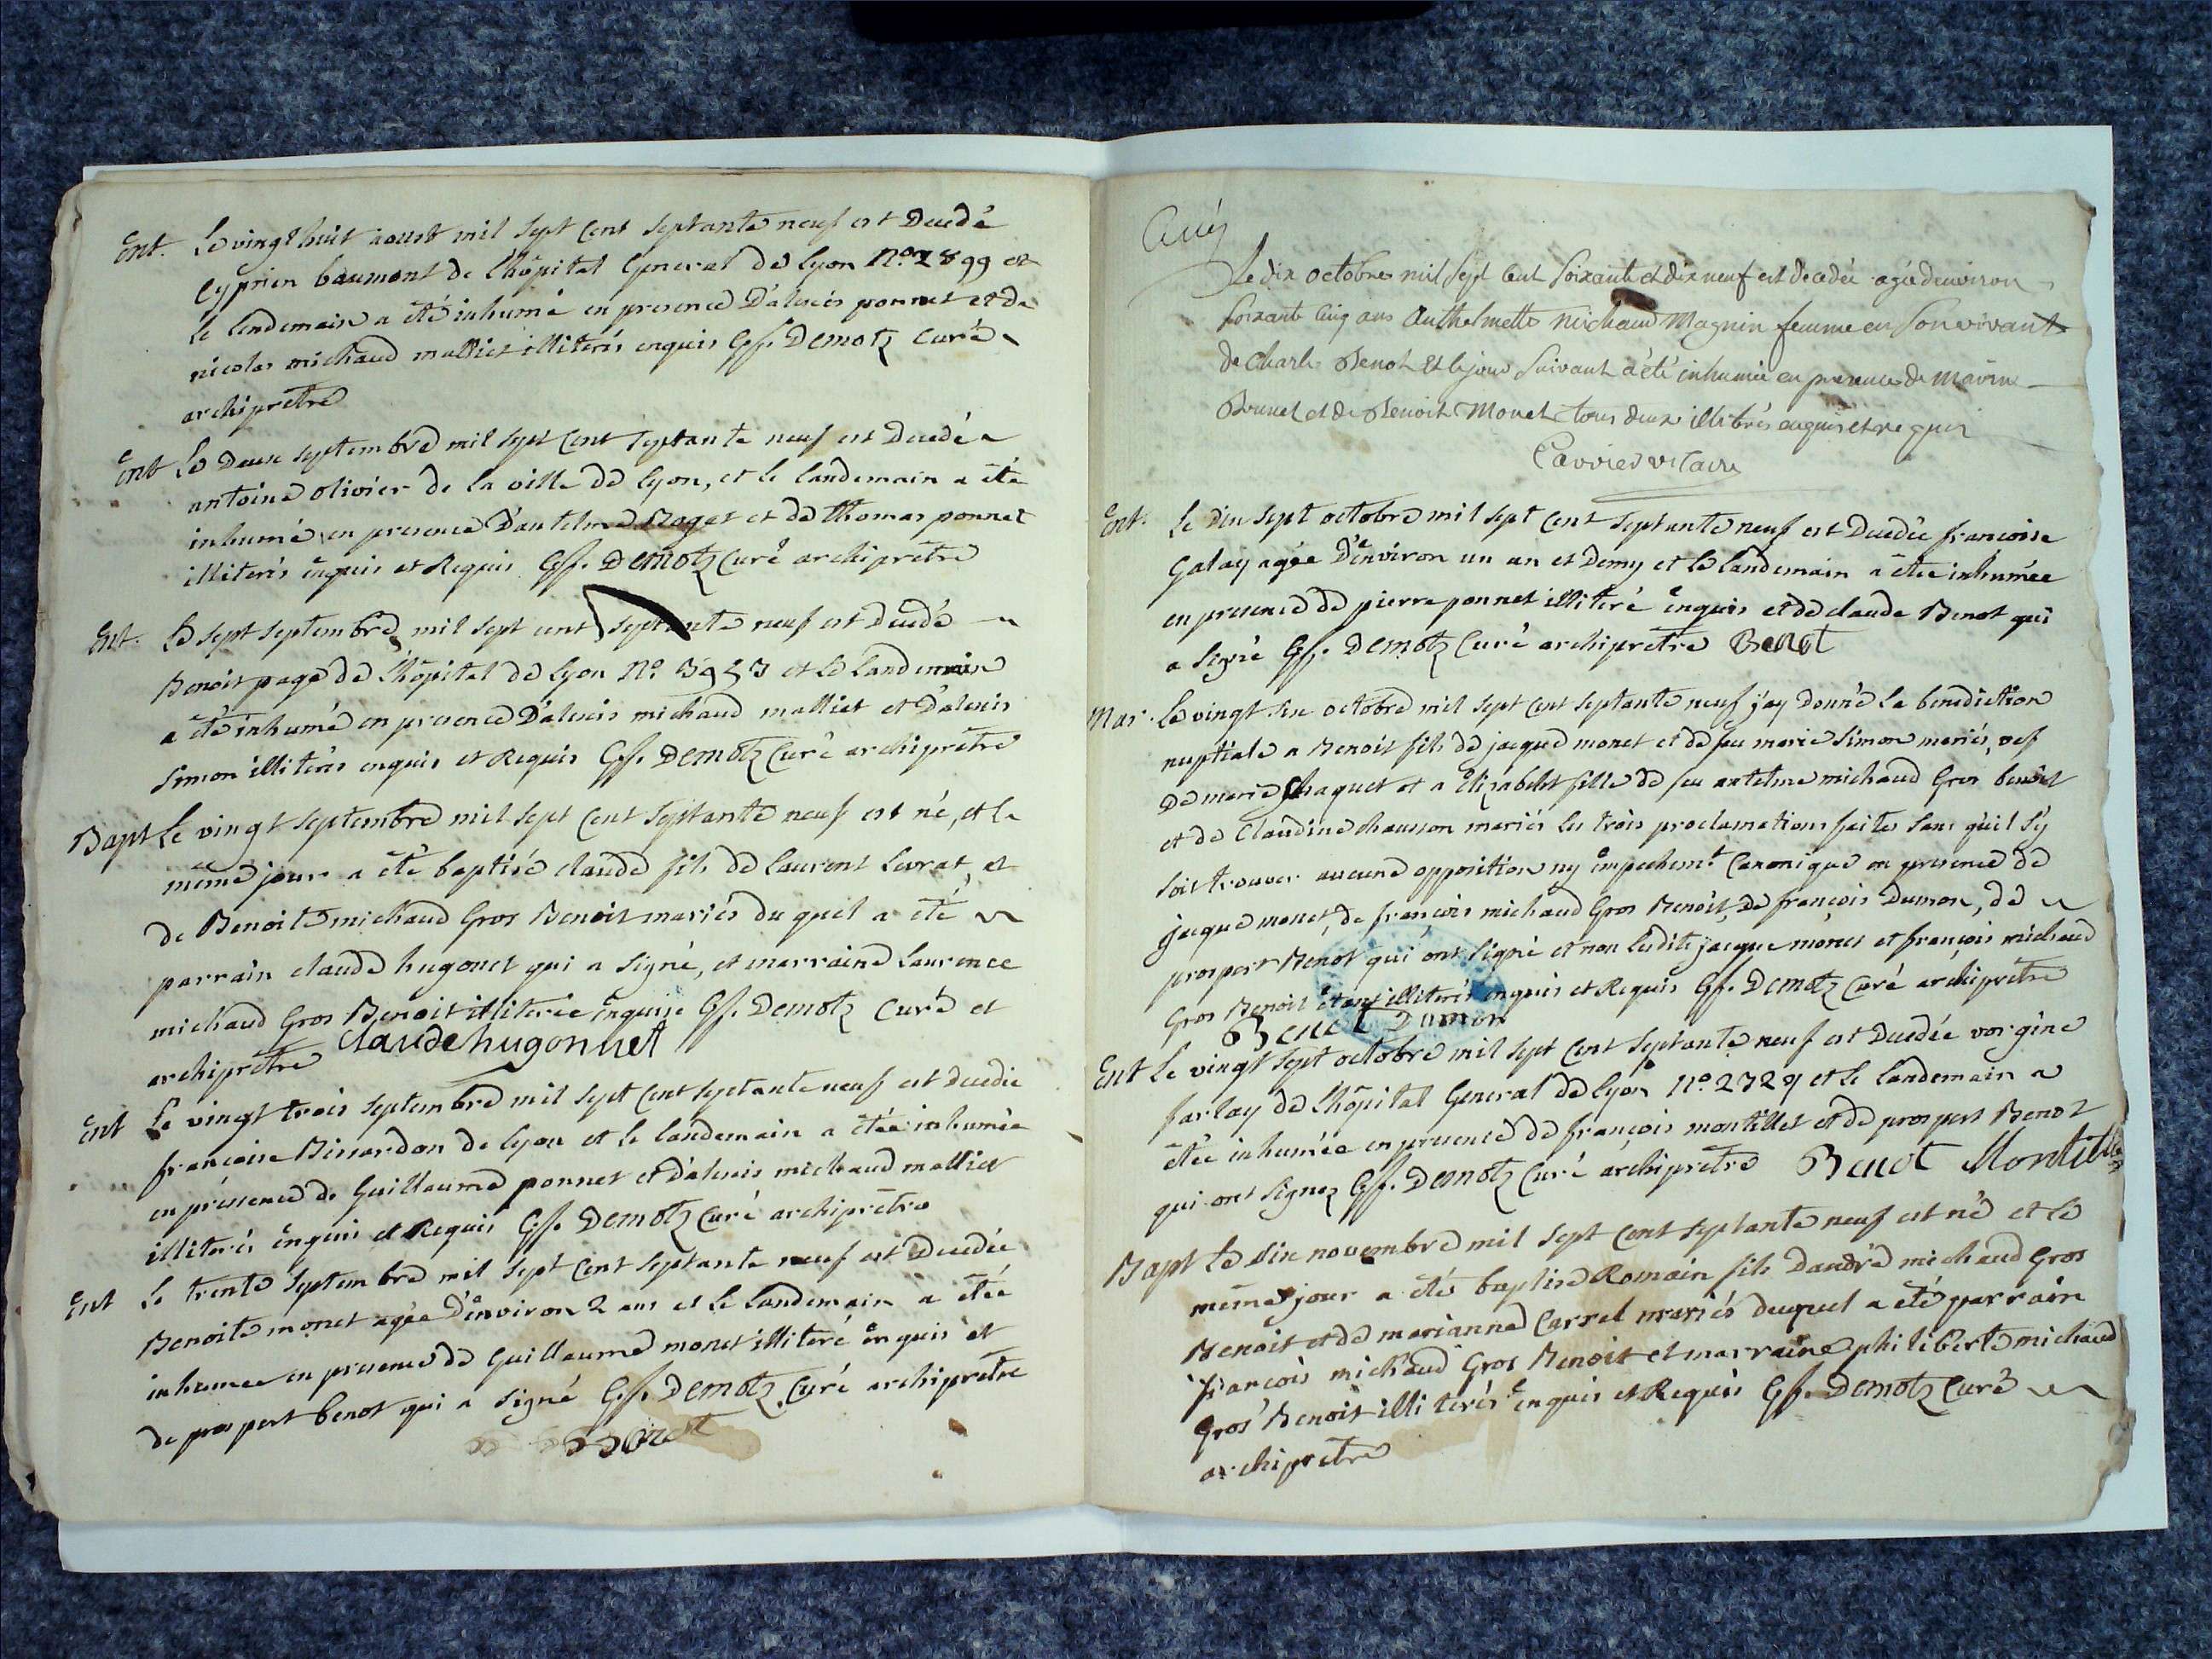 Ent. Le vingt huit aoust mil sept cent septante neuf est Decedé
Cyprien baumont de l'hôpital General de lyon N° 2899 et
le lendemain a été inhumé en presence D'alexis ponnet et de
nicolas michaud malliet illiterés enquis Gsf. Demotz Curé
archiprêtre
Ent Le Deux septembre mil sept cent septante neuf est Decedé
antoine olivier de la ville de lyon, et le landemain a été
inhumé en presence D'antelme Raget et de thomas ponnet
illiterés enquis et Requis Gsf. Demotz Curé archiprêtre
Ent. Le sept septembre mil sept cent septante neuf est decedé
Benoit page de l'hôpital de lyon N° 3953 et le landemain
a été inhumé en presence D'alexis michaud malliet et D'alexis
Simon illiterés enquis et Requis Gsf. Demotz Curé archiprêtre
Bapt Le vingt septembre mil sept cent septante neuf est né, et le
même jour a été baptisé claude fils de laurent Levrat, et
de Benoite michaud Gros Benoit mariés du quel a été
parrain claude hugonet qui a signé, et marraine laurence
michaud Gros Benoit illiterée enquise Gsf. Demotz Curé et
archiprêtre claude hugonnet
Ent Le vingt trois septembre mil sept cent septante neuf est decedée
françoise Bissardon de lyon et le landemain a étée inhumée
en présence de Guillaume ponnet et d'alexis michaud malliet
illiterés enquis et Requis Gsf. Demotz Curé archiprêtre
Ent Le trente septembre mil sept cent septante neuf est Decedée
Benoite monet agée D'environ 2 ans et le landemain a étée
inhumee en presence de Guillaume monet illiteré enquis et
de prospert benot qui a signé Gsf. Demotz Curé archiprêtre
Benot
Le dix octobre mil sept cent soixante et dix neuf est decedée agée denviron
soixante cinq ans Anthelmette Michaud Magnin femme en son vivant
de Charle Benot et le jour suivant a été inhumée en presence de Marin
Bonnet et de Benoit Monet tous deux illitrés enquis et requis
vicaire
Ent. Le dix sept octobre mil sept cent septante neuf est Decedée francoise
Galay agée D'environ un an et Demy et le landemain a étée inhumée
en presence de pierre ponnet illiteré enquis et de claude Benot qui
a signé Gsf. Demotz Curé archiprêtre Benot
Mar. Le vingt six octobre mil sept cent septante neuf j'ay donné la benediction
nuptiale a Benoit fils de jacque monet et de feu marie Simon mariés, vef
De marie Chaquet et a Elizabeht fille de feu antelme michaud Gros benoit
et de Claudine chausson mariés les trois proclamations faites sans qu'il s'y
soit trouver aucune opposition ny empechemt Canonique en presence de
jacque monet, de françois michaud Gros Benoit, de françois Dumon, de
prospert Benot qui ont signé et non lesdits jacque monet et françois michaud
Gros Benoit étant illiterés enquis et Requis Gsf. Demotz Curé archiprêtre
Benot Dumon
Ent Le vingt sept octobre mil sept cent septante neuf est Decedée vorgine
farlay de l'hôpital General de lyon N° 2729 et le landemain a
étée inhumée en presence de françois montillet et de prospert Benot
qui ont signez Gsf. Demotz Curé archiprêtre Benot Montillet
Bapt Le dix novembre mil sept cent septante neuf est né et le
même jour a été baptisé Romain fils Dandré michaud Gros
Benoit et de marianne Carrel mariés duquel a été parrain
françois michaud Gros Benoit et marraine philiberte michaud
Gros Benoit illiterés enquis et Requis Gsf. Demotz Curé
archiprêtre